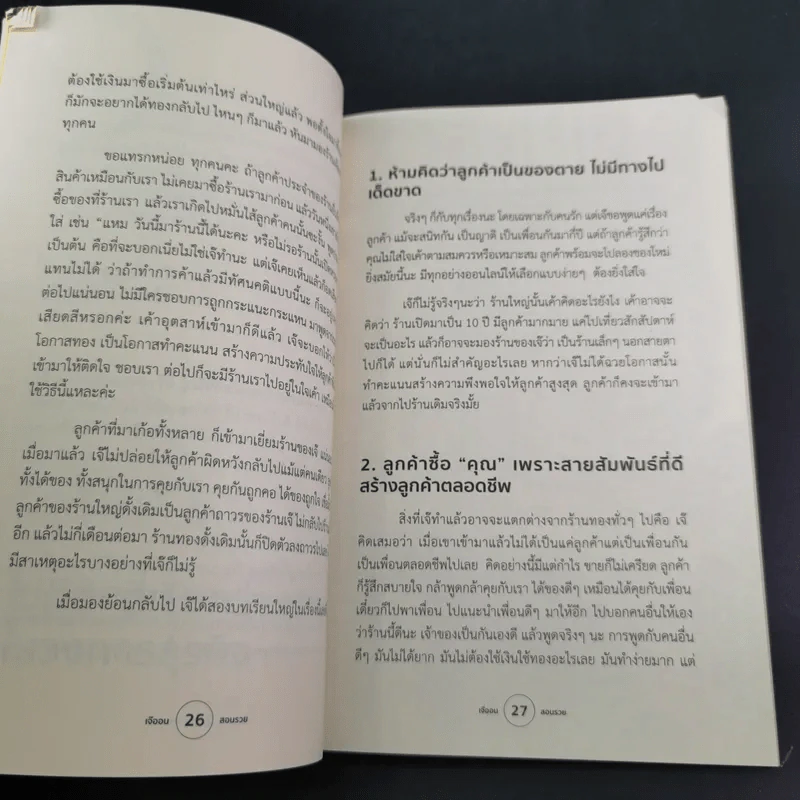 ต้องใช้เงินมาซื้อเริ่มต้นเท่าไหร่ ส่วนใหญ่แล้ว
ก็มักจะอยากได้ทองกลับไป ไหนๆ ก็มาแล้ว หันมามองร้าน
ทุกคน
ขอแทรกหน่อย ทุกคนคะ ถ้าลูกค้าประจำของร้าน
สินค้าเหมือนกับเรา ไม่เคยมาซื้อร้านเรามาก่อน แล้ววัน
ซื้อของที่ร้านเรา แล้วเราเกิดไปหมั่นไส้ลูกค้าคนนั้นซะงั้น
ใส่ เช่น “แหม วันนี้มาร้านนี้ได้นะคะ หรือไม่รอร้านนั้น
เป็นต้น คือที่จะบอกเนี่ยไม่ใช่เจ๊ทำนะ แต่เจ๊เคยเห็นแล้ว
แทนไม่ได้ ว่าถ้าทำการค้าแล้วมีทัศนคติแบบนี้นะ
ต่อไปแน่นอน ไม่มีใครชอบการถูกกระแนะกระแหน
เสียดสีหรอกค่ะ เค้าอุตส่าห์เข้ามาก็ดีแล้ว เจ๊จะบอก
โอกาสทอง เป็นโอกาสทำคะแนน สร้างความประทับใจให้
เข้ามาให้ติดใจ ชอบเรา ต่อไปก็จะมีร้านเราไปอยู่ในใจเค้า
ใช้วิธีนี้แหละค่ะ
ลูกค้าที่มาเก้อทั้งหลาย ก็เข้ามาเยี่ยมร้านของเจ๊
เมื่อมาแล้ว เจ๊ไม่ปล่อยให้ลูกค้าผิดหวังกลับไปแม้แต่คนเดียว
ทั้งได้ของ ทั้งสนุกในการคุยกับเรา คุยกันถูกคอ ได้ของถูกใจ
ลูกค้าของร้านใหญ่ดั้งเดิมเป็นลูกค้าถาวรของร้านเจ๊ ไม่กลับไป
อีก แล้วไม่กี่เดือนต่อมา ร้านทองดั้งเดิมนั้นก็ปิดตัวลงถาวร
มีสาเหตุอะไรบางอย่างที่เจ๊ก็ไม่รู้
เมื่อมองย้อนกลับไป เจ๊ได้สองบทเรียนใหญ่ในเรื่องนี้
เจ๊ออน 26 สอนรวย
1. ห้ามคิดว่าลูกค้าเป็นของตาย ไม่มีทางไป
เด็ดขาด
จริงๆ ก็กับทุกเรื่องนะ โดยเฉพาะกับคนรัก แต่เจ๊ขอพูดแค่เรื่อง
ลูกค้า แม้จะสนิทกัน เป็นญาติ เป็นเพื่อนกันมากี่ปี แต่ถ้าลูกค้ารู้สึกว่า
คุณไม่ใส่ใจเค้าตามสมควรหรือเหมาะสม ลูกค้าพร้อมจะไปลองของใหม่
ยิ่งสมัยนี้นะ มีทุกอย่างออนไลน์ให้เลือกแบบง่ายๆ ต้องยิ่งใส่ใจ
เจ๊ก็ไม่รู้จริงๆนะว่า ร้านใหญ่นั้นเค้าคิดอะไรยังไง เค้าอาจจะ
คิดว่า ร้านเปิดมาเป็น 10 ปี มีลูกค้ามากมาย แค่ไปเที่ยวสักสัปดาห์
จะเป็นอะไร แล้วก็อาจจะมองร้านของเจ๊ว่า เป็นร้านเล็กๆ นอกสายตา
ไปก็ได้ แต่นั่นก็ไม่สำคัญอะไรเลย หากว่าเจ๊ไม่ได้ฉวยโอกาสนั้น
ทำคะแนนสร้างความพึงพอใจให้ลูกค้าสูงสุด ลูกค้าก็คงจะเข้ามา
แล้วจากไปร้านเดิมจริงมั้ย
2. ลูกค้าซื้อ “คุณ” เพราะสายสัมพันธ์ที่ดี
สร้างลูกค้าตลอดชีพ
สิ่งที่เจ๊ทำแล้วอาจจะแตกต่างจากร้านทองทั่วๆ ไปคือ เจ๊
คิดเสมอว่า เมื่อเขาเข้ามาแล้วไม่ได้เป็นแค่ลูกค้าแต่เป็นเพื่อนกัน
เป็นเพื่อนตลอดชีพไปเลย คิดอย่างนี้มีแต่กำไร ขายก็ไม่เครียด ลูกค้า
ก็รู้สึกสบายใจ กล้าพูดกล้าคุยกับเรา ได้ของดีๆ เหมือนได้คุยกับเพื่อน
เดี๋ยวก็ไปพาเพื่อน ไปแนะนำเพื่อนดีๆ มาให้อีก ไปบอกคนอื่นให้เอง
ว่าร้านนี้ดีนะ เจ้าของเป็นกันเองดี แล้วพูดจริงๆ นะ การพูดกับคนอื่น
ดีๆ มันไม่ได้ยาก มันไม่ต้องใช้เงินใช้ทองอะไรเลย มันทำง่ายมาก แต่
เจ๊ออน 27 สอนรวย